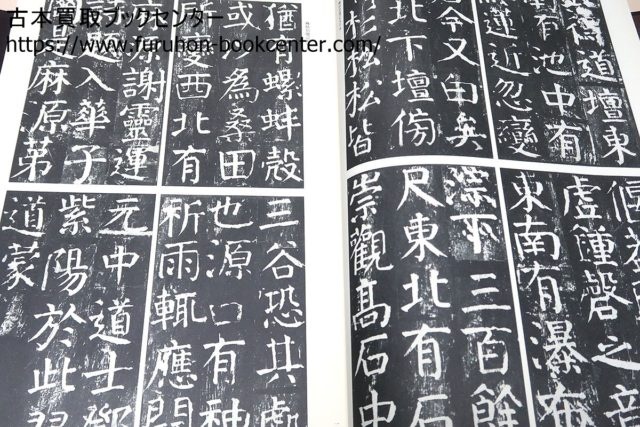 古本買取ブックセンター
https://www.furuhon-bookcenter.com/
得道壇東
有池中有
蓮近忽變
今又白矣
北下壇傍
松松皆
虛鍾磬之音
東南有瀑布
淙下三百餘
尺東北有石
崇觀高石中
猶有螺蚌殼
或以為桑田
變西北有
源謝靈運
題入華子
麻源第
三谷恐其處
也源口有神
祈雨輒應開
元中道士鄧
紫陽於此習
道蒙